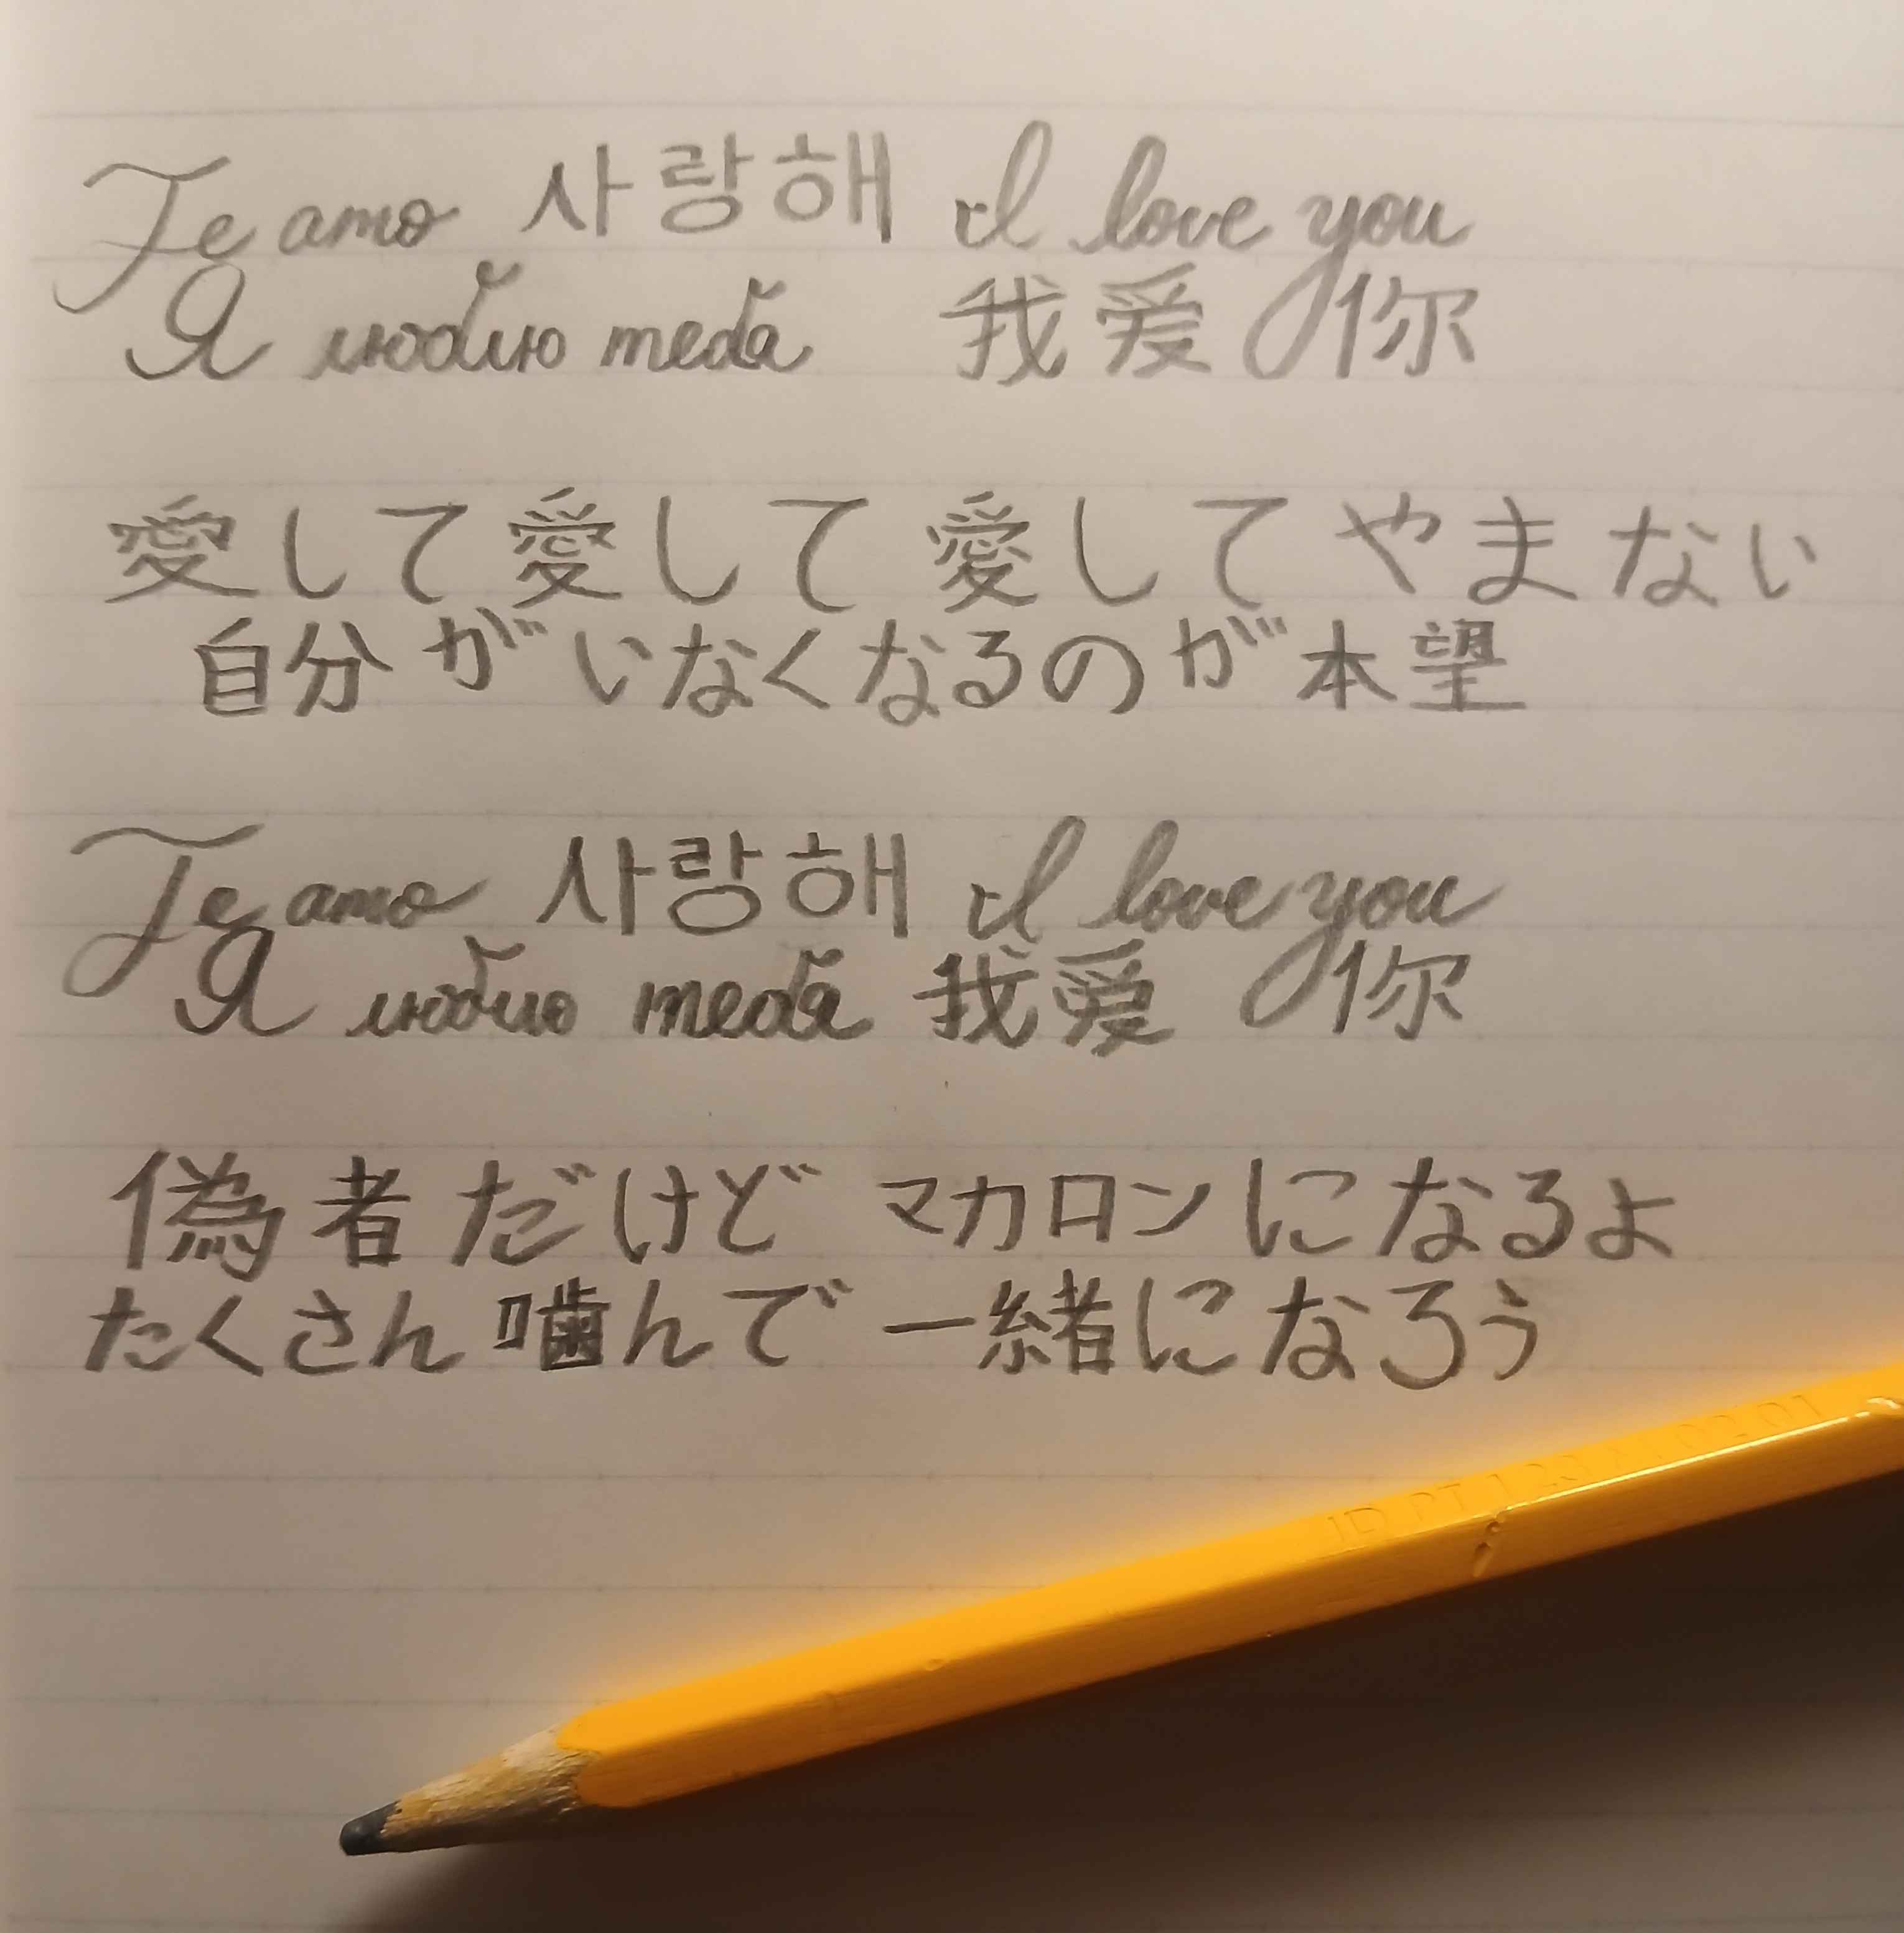 Te amo 사랑해 I love you
Я люблю тебя 我爱你
愛して愛して愛してやまない
自分がいなくなるのが本望
Te amo 사랑해 I love you
Я люблю тебя 我爱你
偽者だけどマカロンになるよ
たくさん噛んで一緒になろう